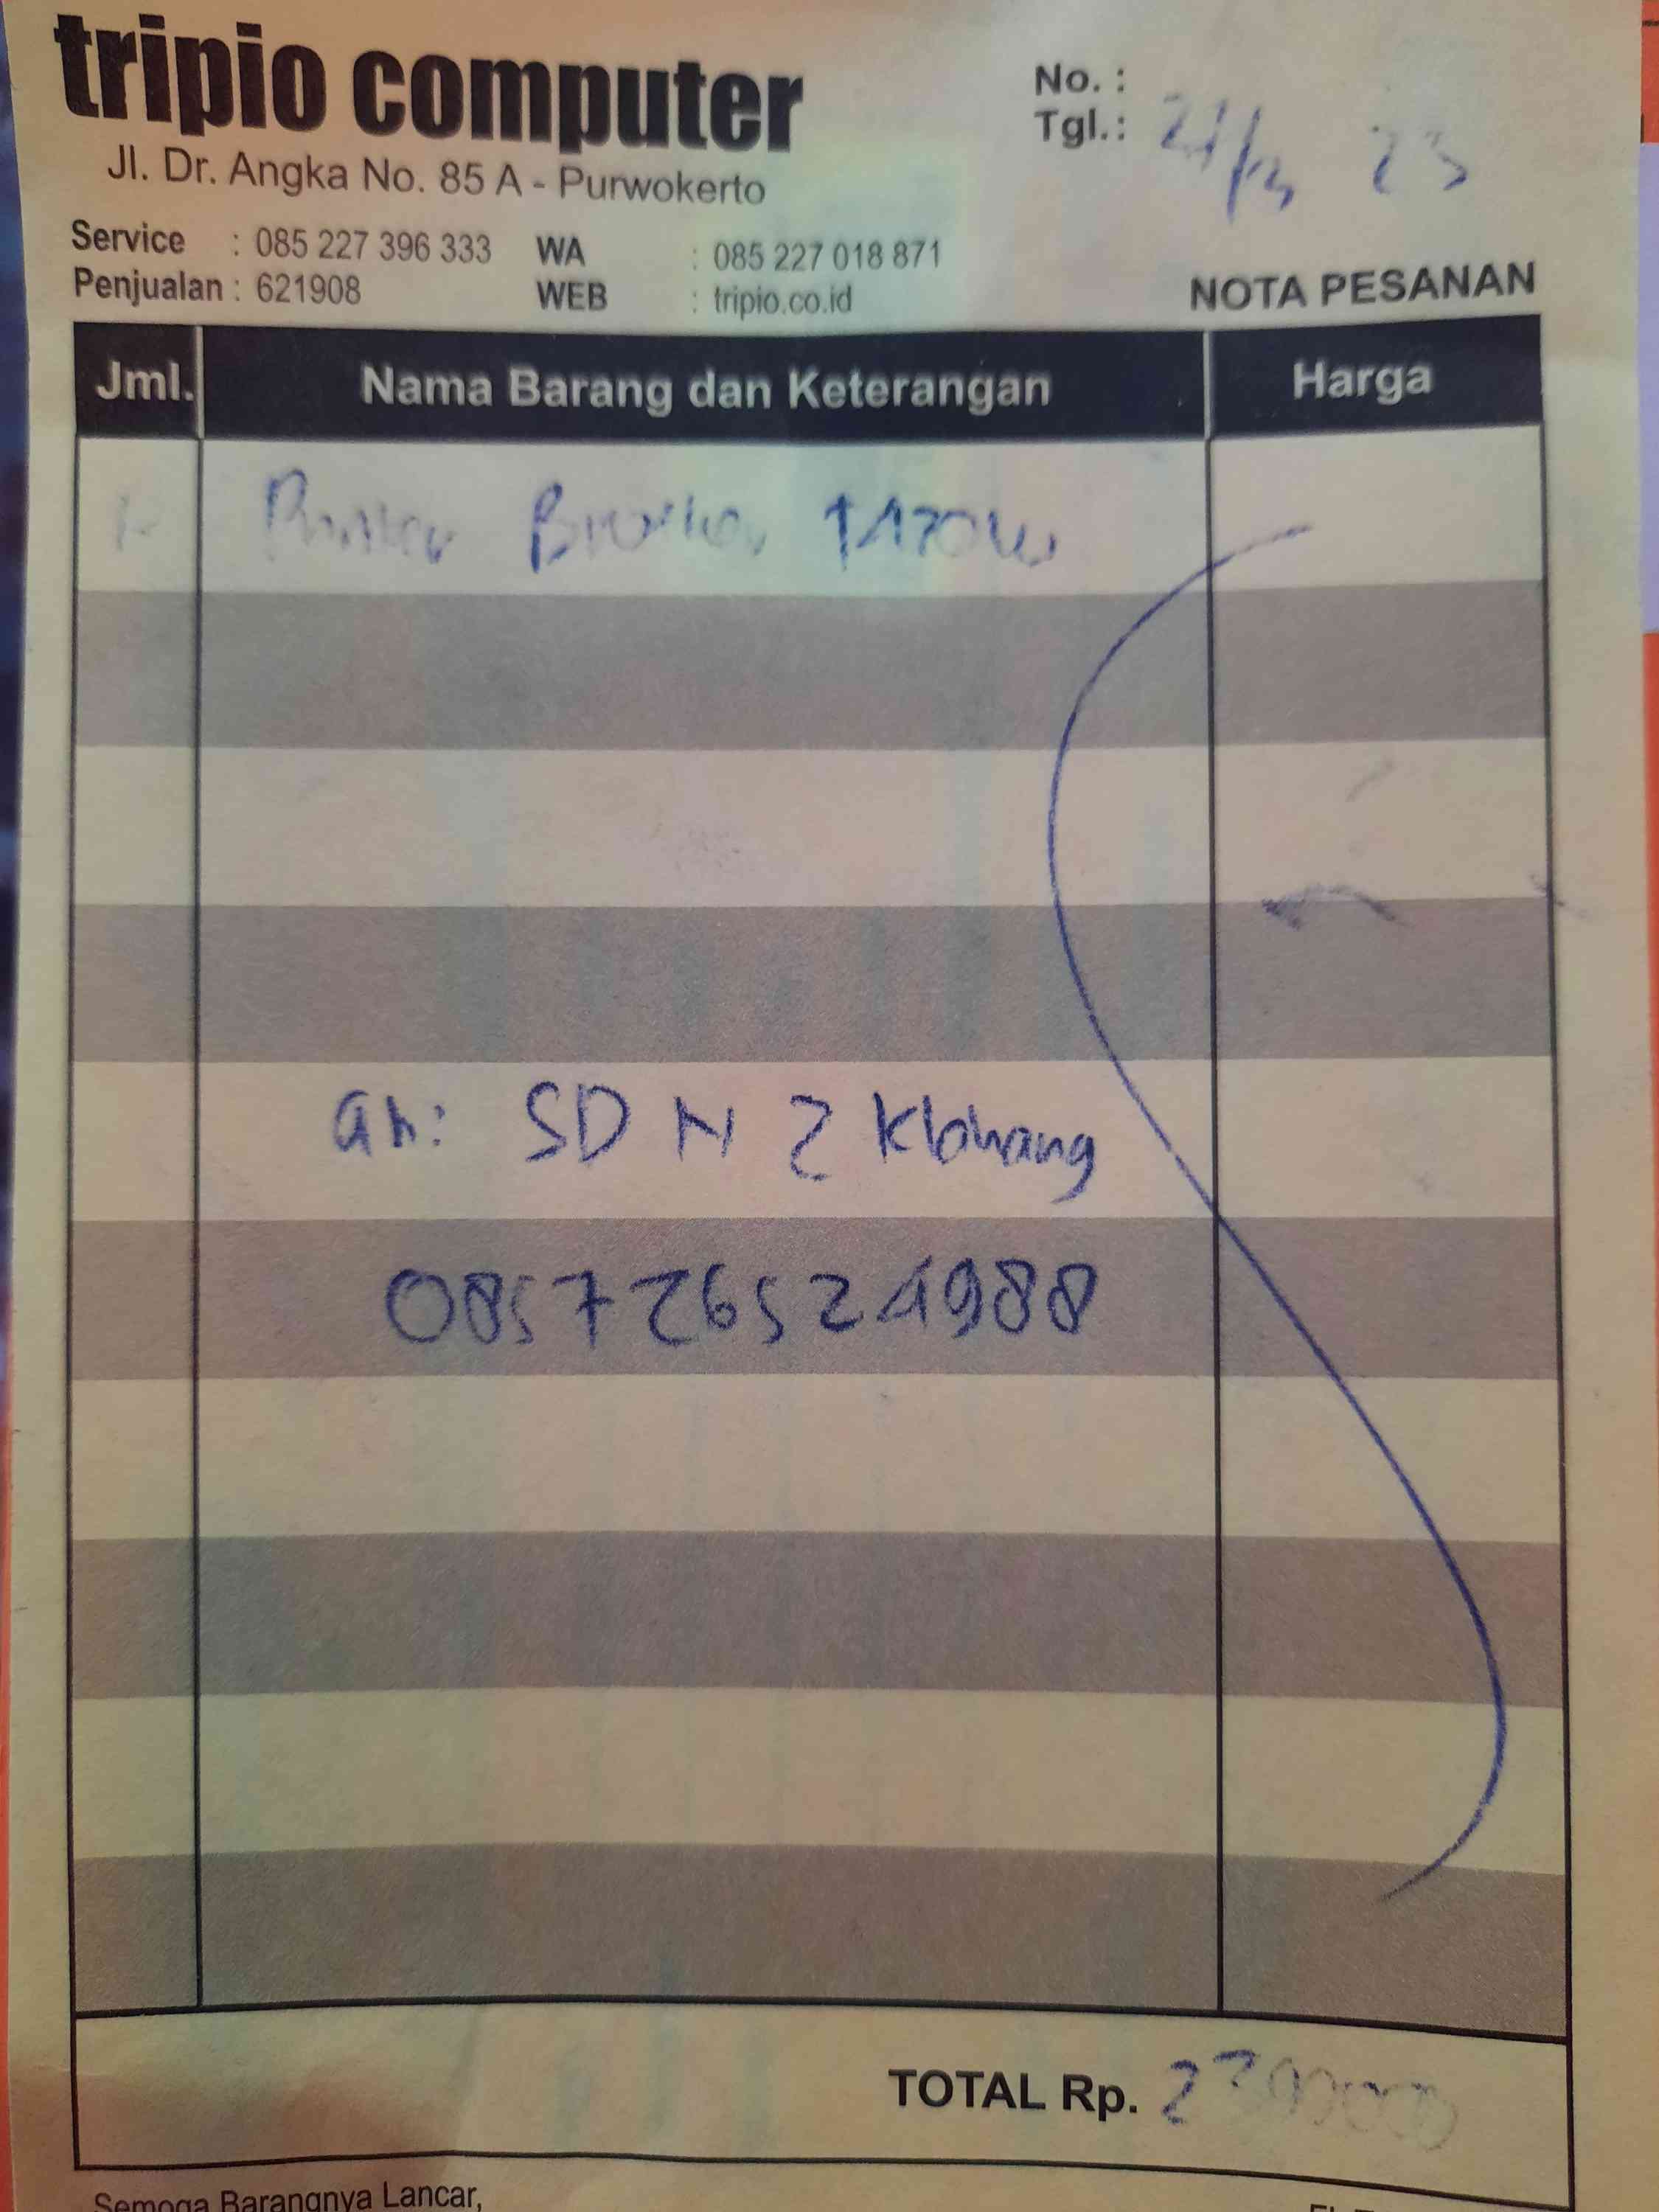 tripio computer
Jl. Dr. Angka No. 85 A - Purwokerto
Service : 085 227 396 333 WA : 085 227 018 871
Penjualan : 621908 WEB : tripio.co.id
No. :
Tgl. : 21/3 23
NOTA PESANAN
Jml. Nama Barang dan Keterangan Harga
Printer Brother T420W
an: SD N 2 Klahang
085726524988
TOTAL Rp.
Semoga Barangnya Lancar,